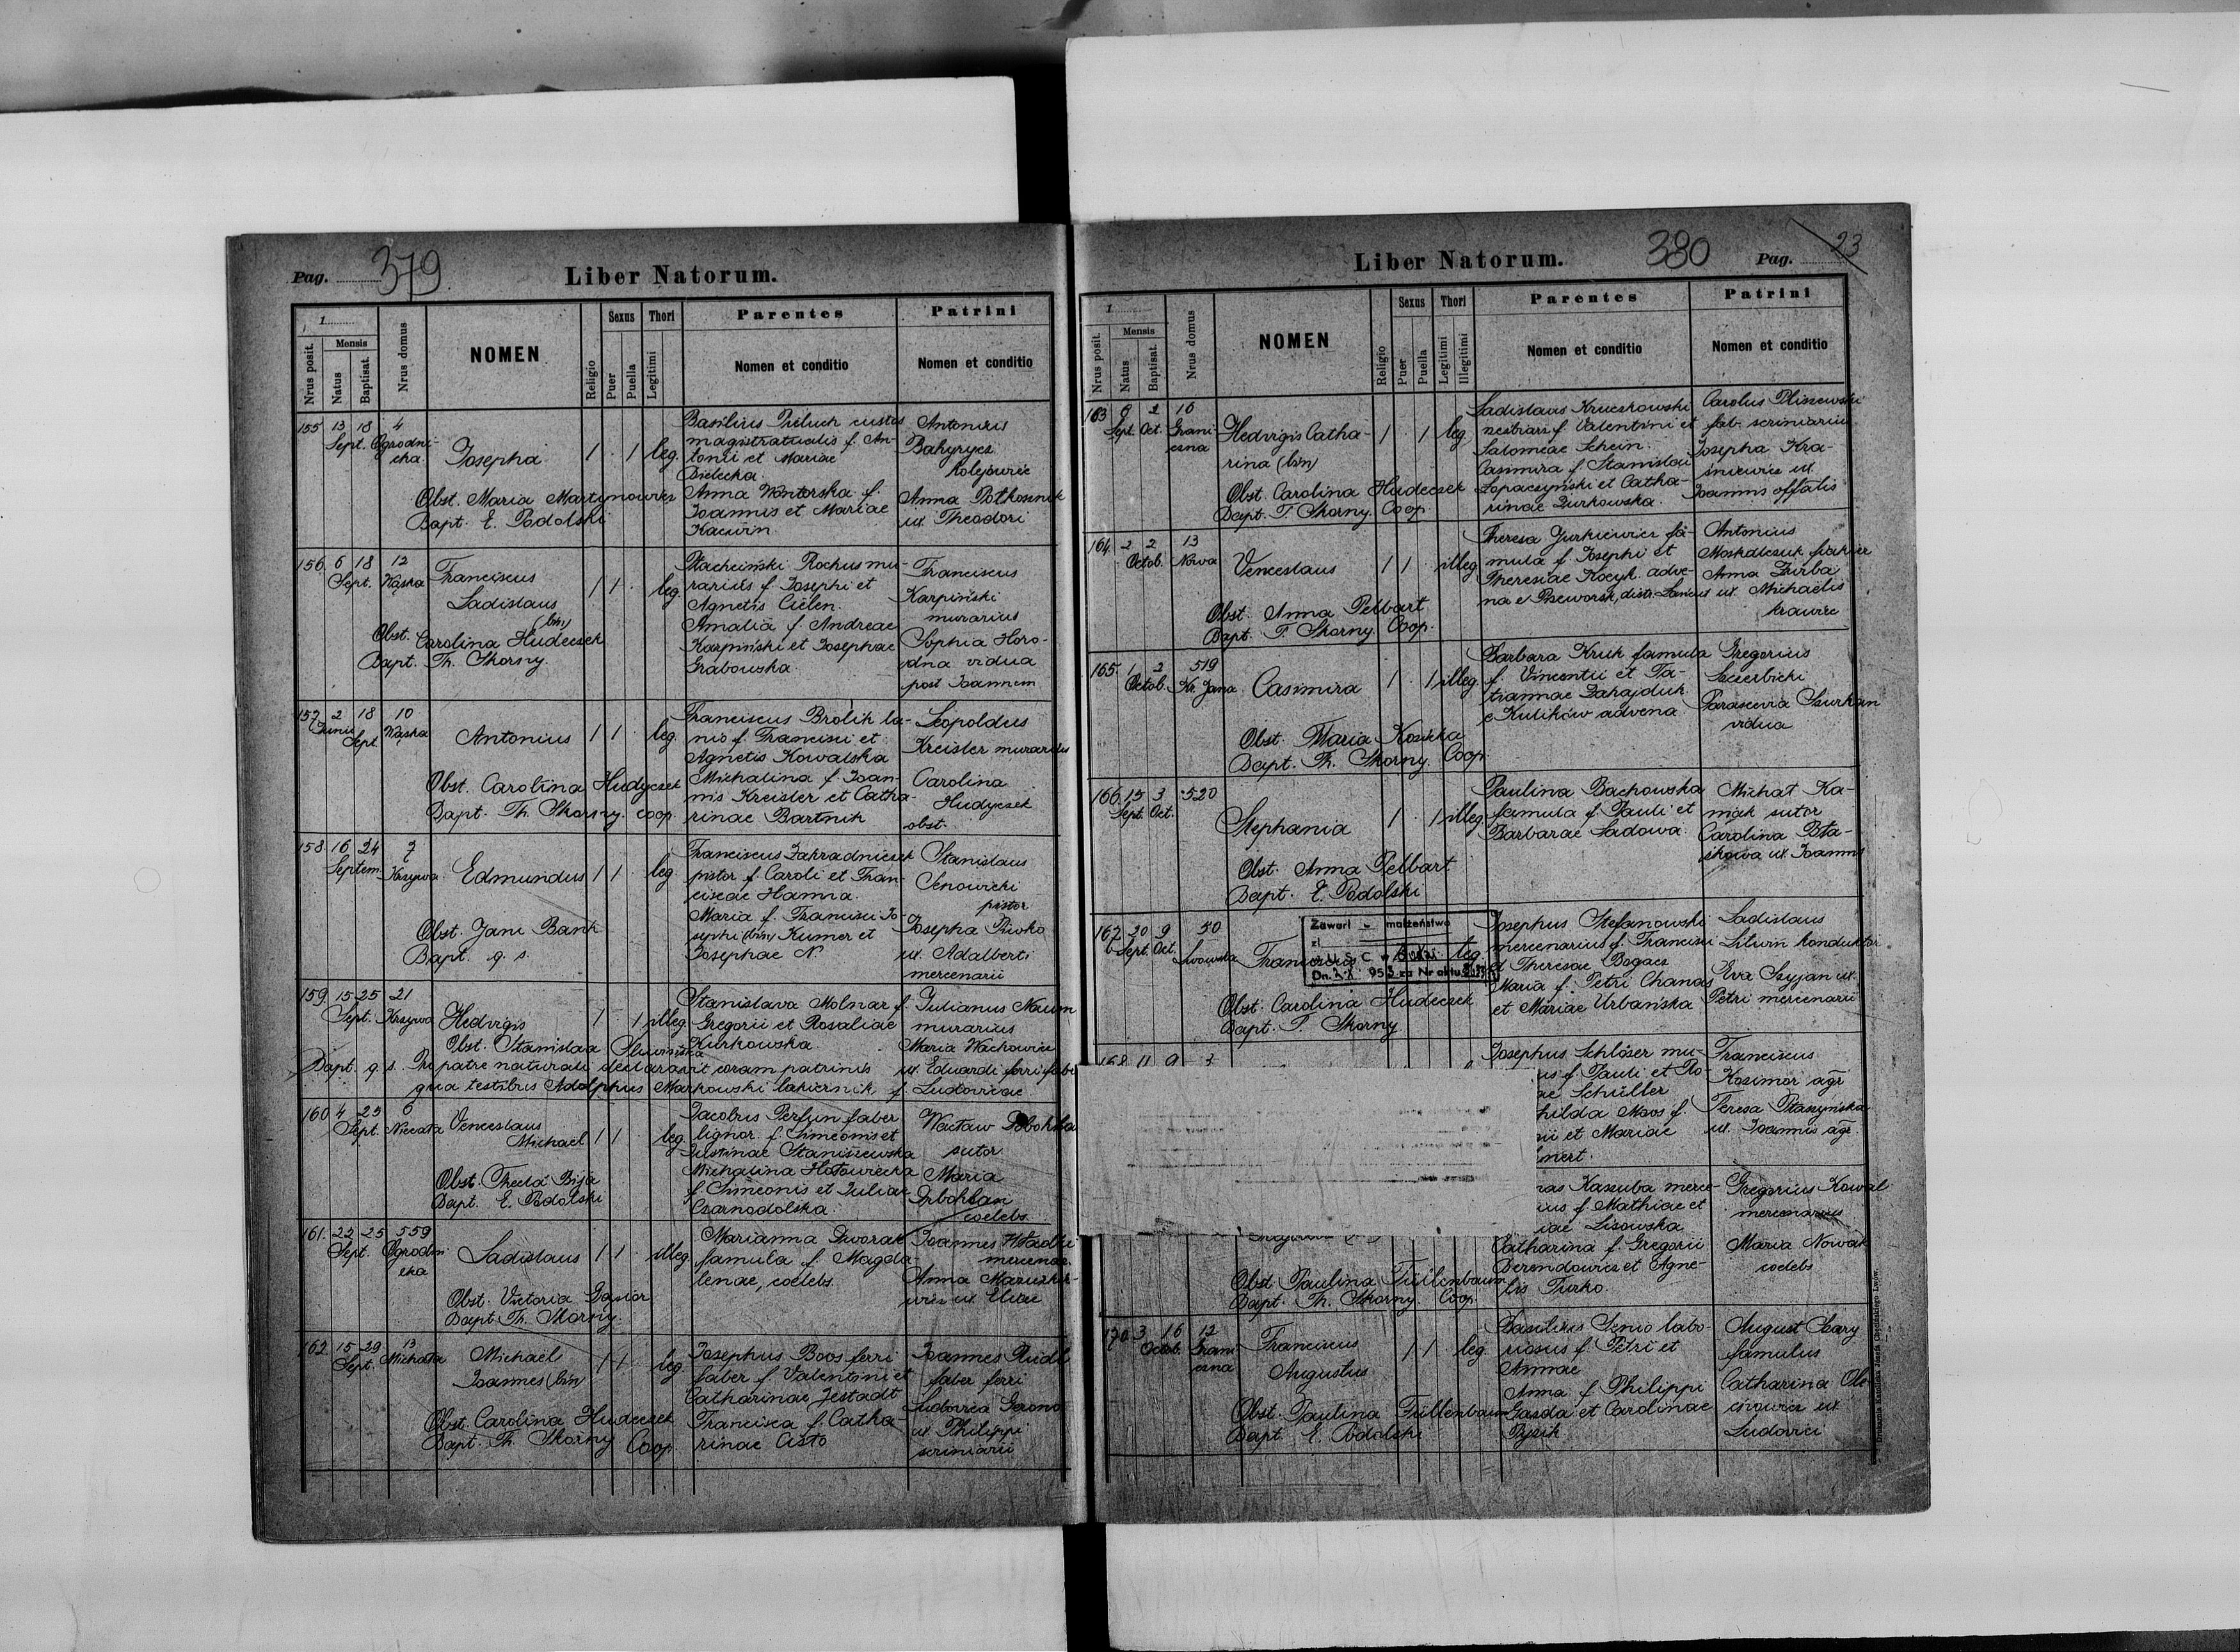 Pag. 379
Liber Natorum.
1
Nrus posit.
Mensis
Natus
Baptisat.
Nrus domus
NOMEN
Religio
Sexus
Puer
Puella
Thori
Legitimi
Parentes
Nomen et conditio
Patrini
Nomen et conditio
155 13 18 4
Sept. Ogrodni-
cka
Josepha 1 1 leg.
Obst. Maria Martynowicz
Bapt. E. Podolski
Basilius custos
magistratualis f. An-
tonii et Mariae
Bielecka
Anna f.
Joannis et Mariae
Antonius
Anna
ux. Theodori
156. 6 18 12
Sept. Wąska
Franciscus
Ladislaus
(bin)
1 1 leg.
Obst. Carolina Hudeczek
Bapt. Th. Skorny.
Rochus mu-
rarius f. Josephi et
Agnetis Cielen.
Amalia f. Andreae
Karpiński et Josephae
Grabowska.
Franciscus
Karpiński
murarius
Sophia Horo-
dna vidua
post Joannem
157. 2 18 10
Junii Sept. Wąska
Antonius 1 1 leg.
Obst. Carolina Hudyczek
Bapt. Th. Skorny. coop.
Franciscus Brolik la-
nio f. Francisci et
Agnetis Kowalska
Michalina f. Joan-
nis Kreisler et Catha-
rinae Bartnik
Leopoldus
Kreisler murarius
Carolina
Hudyczek
obst.
158. 16 24 7
Septem. Krzywa
Edmundus 1 1 leg.
Obst. Jani Bank
Bapt. q. s.
Franciscus Zahradniczek
pistor f. Caroli et Fran-
ciscae Hanna.
Maria f. Francisci Jo-
sephi (bin) Kumer et
Josephae N.
Stanislaus
Senowicki
pistor
Josepha
ux. Adalberti
mercenarii
159. 15 25 21
Sept. Krzywa
Hedvigis 1 1 illeg.
Obst. Stanislaa Śliwińska
Bapt. q. s. Pro patre naturali declaravit coram patrinis
qua testibus Adolphus Markowski lakiernik f. Ludovicae
Stanislava Molnar f.
Gregorii et Rosaliae
Kurkowska.
Julianus Naum
murarius
Maria Wachowicz
ux. Eduardi ferri fabri
160 4 25 6
Sept. Niecała
Venceslaus
Michael 1 1 leg.
Obst. Thecla Bija
Bapt. E. Podolski
Jacobus Perfun faber
lignar. f. Simeonis et
Justinae Staniszewska
Michalina Hołowiecka
f. Simeonis et Juliae
Czarnodolska.
Wacław
sutor
Maria
coelebs
161. 22 25 559
Sept. Ogrodni-
cka
Ladislaus 1 1 illeg.
Obst. Victoria Gąsior
Bapt. Th. Skorny.
Marianna Dworak
famula f. Magda-
lenae, coelebs.
Joannes
mercenar.
Anna
ux. Eliae
162. 15 29 13
Sept. Michała
Michael
Joannes (bin) 1 1 leg.
Obst. Carolina Hudeczek
Bapt. Th. Skorny Coop.
Josephus Boos ferri
faber f. Valentini et
Catharinae Jestadt
Francisca f. Catha-
rinae Cisło
Joannes Riedl
faber ferri
Ludovica
ux. Philippi
scriniarii
Liber Natorum. 380 Pag. 23
1
Nrus posit.
Mensis
Natus
Baptisat.
Nrus domus
NOMEN
Religio
Sexus
Puer
Puella
Thori
Legitimi
Illegitimi
Parentes
Nomen et conditio
Patrini
Nomen et conditio
163 9 2 16
Sept. Oct. Grani-
czna
Hedvigis Catha-
rina (bin) 1 1 leg.
Obst. Carolina Hudeczek
Bapt. T. Skorny. Coop.
Ladislaus Kruczkowski
f. Valentini et
Salomeae Schein.
Casimira f. Stanislai
Łopaczyński et Catha-
rinae Żurkowska.
Carolus Pliszewski
fab. scriniarius
Josepha Kra-
śnicwicz ux.
Joannis offalis
164 2 2 13
Octob. Nowa
Venceslaus 1 1 illeg.
Obst. Anna Pelbart
Bapt. T. Skorny. Coop.
Theresa Jurkiewicz fa-
mula f. Josephi et
Theresiae Kocyk. adve-
na e Przeworsk, distr. Łańcut
Antonius
Moskalczuk fiakier
Anna Dziurba
ux. Michaelis
krawiec
165. 1 2 519
Octob. Kr. Jana
Casimira 1 1 illeg.
Obst. Maria Koszka
Bapt. Th. Skorny. Coop.
Barbara Kruk famula
f. Vincentii et Ta-
tiannae Zahajduk
e Kulików advena
Gregorius
Szczerbicki
Parascevia Szurkan
vidua
166. 15 3 520
Sept. Oct.
Stephania 1 1 illeg.
Obst. Anna Pelbart
Bapt. E. Podolski
Paulina Bachowska
famula f. Pauli et
Barbarae Sadowa.
Michał Ka-
mąk sutor
Carolina Pta-
skowa ux. Joannis
167. 20 9 50
Sept. Oct. Lwowska
Zawarł małżeństwo
U.S.C. w
Dn. 953 za Nr aktu
leg.
Obst. Carolina Hudeczek
Bapt. T. Skorny
Josephus Stefanowski
mercenarius f. Francisci
et Theresae Bogacz
Maria f. Petri Chanas
et Mariae Urbańska
Ladislaus
Litwin konduktor
Eva Szyjan ux.
Petri mercenarii
168. 11 9 3
Josephus Schlöser mu-
us f. Pauli et Ro-
ae Schüller
hilda Moos f.
ii et Mariae
mert.
Franciscus
Kazimor agr.
Teresa Ptaszyńska
ux. Joannis agr.
as Kaszuba merce-
ius f. Mathiae et
iae Lisowska
Catharina f. Gregorii
Derendowicz et Agne-
tis Turko.
Gregorius Kowal
mercenarius
Maria Nowak
coelebs
Obst. Paulina Tüllenbaum
Bapt. Th. Skorny. Coop.
170. 3 16 12
Octob. Grani-
czna
Franciscus
Augustus 1 1 leg.
Obst. Paulina Tüllenbaum
Bapt. E. Podolski
Basilius Senio labo-
riosus f. Petri et
Annae
Anna f. Philippi
Gazda et Carolinae
Pyzik
August Szary
famulus
Catharina Ole-
ux.
Ludovici